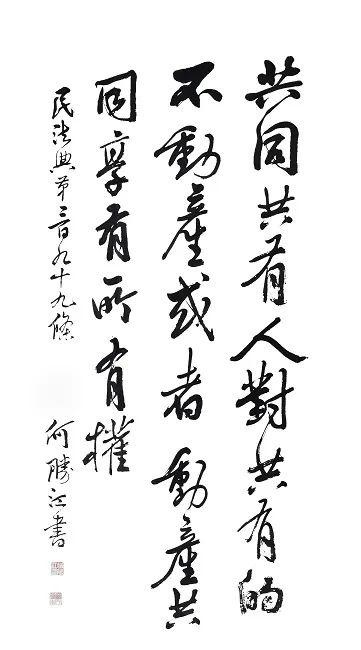 共同共有人對共有的
不動產或者動產共
同享有所有權
民法典第二百九十九條
何勝江書